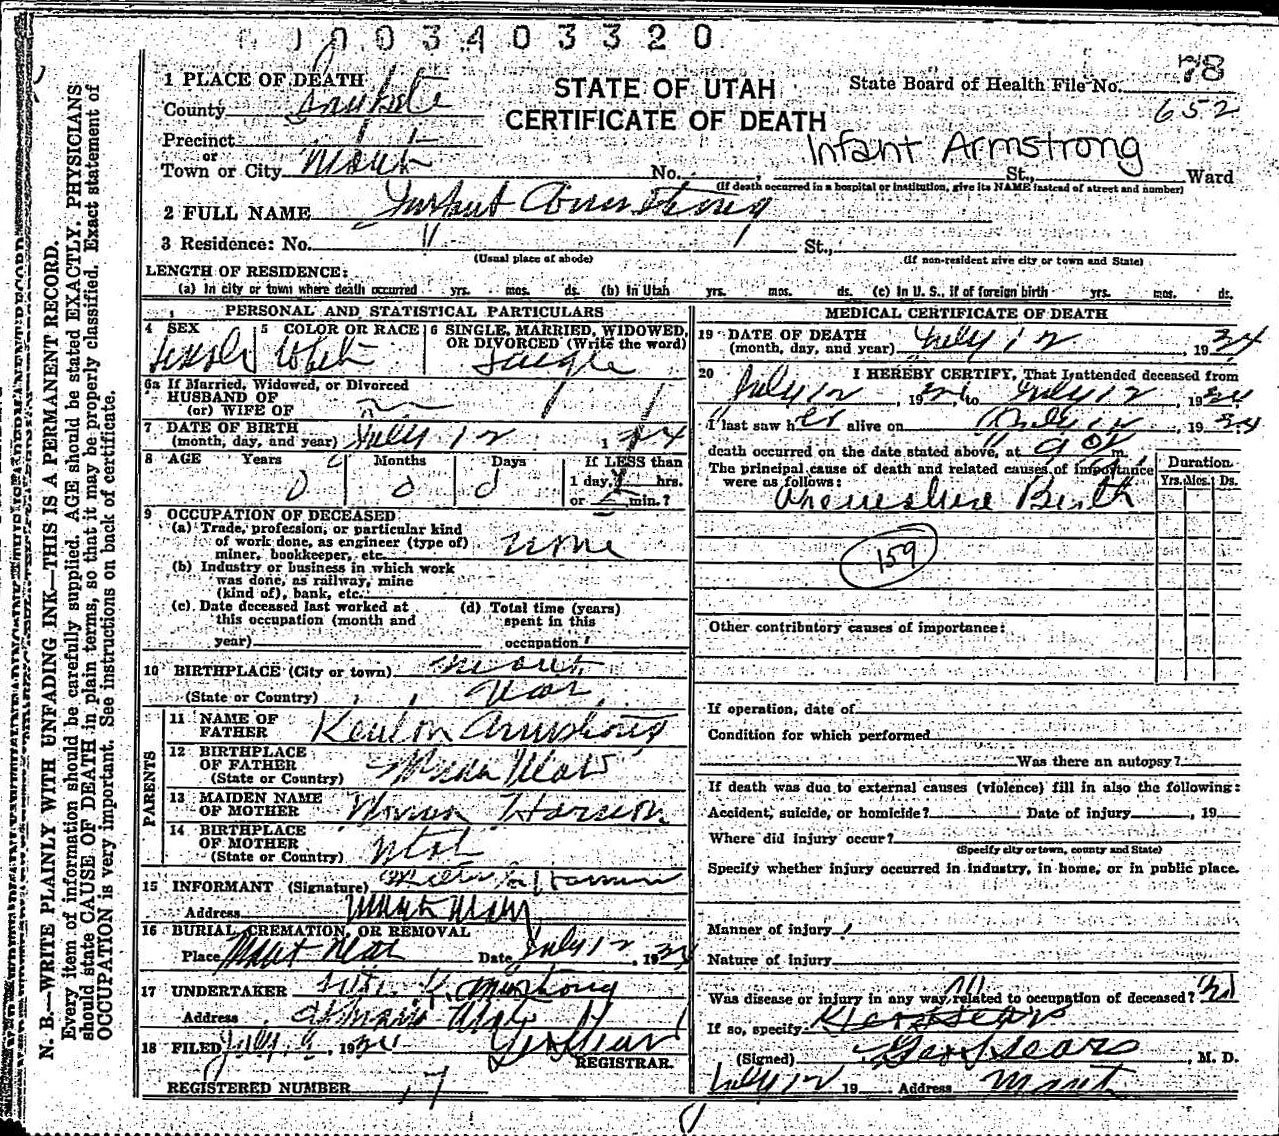 0 0 3 4 0 3 3 2 0
1 PLACE OF DEATH
County
Precinct
or
Town or City Manti
STATE OF UTAH
CERTIFICATE OF DEATH
State Board of Health File No. 78
652
Infant Armstrong
No. St., Ward
(If death occurred in a hospital or institution, give its NAME instead of street and number)
2 FULL NAME Infant Armstrong
3 Residence: No. St.,
(Usual place of abode) (If non-resident give city or town and State)
LENGTH OF RESIDENCE:
(a) In city or town where death occurred yrs. mos. ds. (b) In Utah yrs. mos. ds. (c) In U. S., if of foreign birth yrs. mos. ds.
PERSONAL AND STATISTICAL PARTICULARS
4 SEX 5 COLOR OR RACE 6 SINGLE, MARRIED, WIDOWED, OR DIVORCED (Write the word)
Female White Single
6a If Married, Widowed, or Divorced
HUSBAND OF
(or) WIFE OF
7 DATE OF BIRTH
(month, day, and year) July 12 1 34
8 AGE Years Months Days If LESS than
0 0 0 1 day, hrs.
or min.?
9 OCCUPATION OF DECEASED
(a) Trade, profession, or particular kind
of work done, as engineer (type of)
miner, bookkeeper, etc. none
(b) Industry or business in which work
was done, as railway, mine
(kind of), bank, etc.
(c) Date deceased last worked at (d) Total time (years)
this occupation (month and spent in this
year) occupation
10 BIRTHPLACE (City or town) Manti
(State or Country) Utah
PARENTS
11 NAME OF
FATHER Kenton Armstrong
12 BIRTHPLACE
OF FATHER
(State or Country) Utah
13 MAIDEN NAME
OF MOTHER
14 BIRTHPLACE
OF MOTHER
(State or Country) Utah
15 INFORMANT (Signature)
Address Manti Utah
16 BURIAL, CREMATION, OR REMOVAL
Place Manti Utah Date July 12, 1934
17 UNDERTAKER Armstrong
Address Utah
18 FILED July 1934 Geo Sears
REGISTRAR.
REGISTERED NUMBER 17
MEDICAL CERTIFICATE OF DEATH
19 DATE OF DEATH
(month, day, and year) July 12 1934
20 I HEREBY CERTIFY, That I attended deceased from
July 12, 1934, to July 12, 1934
I last saw her alive on July 12, 1934
death occurred on the date stated above, at m.
The principal cause of death and related causes of importance
were as follows: Premature Birth
Duration
Yrs. Mos. Ds.
159
Other contributory causes of importance:
If operation, date of
Condition for which performed
Was there an autopsy?
If death was due to external causes (violence) fill in also the following:
Accident, suicide, or homicide? Date of injury , 19
Where did injury occur?
(Specify city or town, county and State)
Specify whether injury occurred in industry, in home, or in public place.
Manner of injury
Nature of injury
Was disease or injury in any way related to occupation of deceased? no
If so, specify
(Signed) Geo Sears, M. D.
July 12 19 Address Manti
N. B.—WRITE PLAINLY WITH UNFADING INK—THIS IS A PERMANENT RECORD.
Every item of information should be carefully supplied. AGE should be stated EXACTLY. PHYSICIANS
should state CAUSE OF DEATH in plain terms, so that it may be properly classified. Exact statement of
OCCUPATION is very important. See instructions on back of certificate.